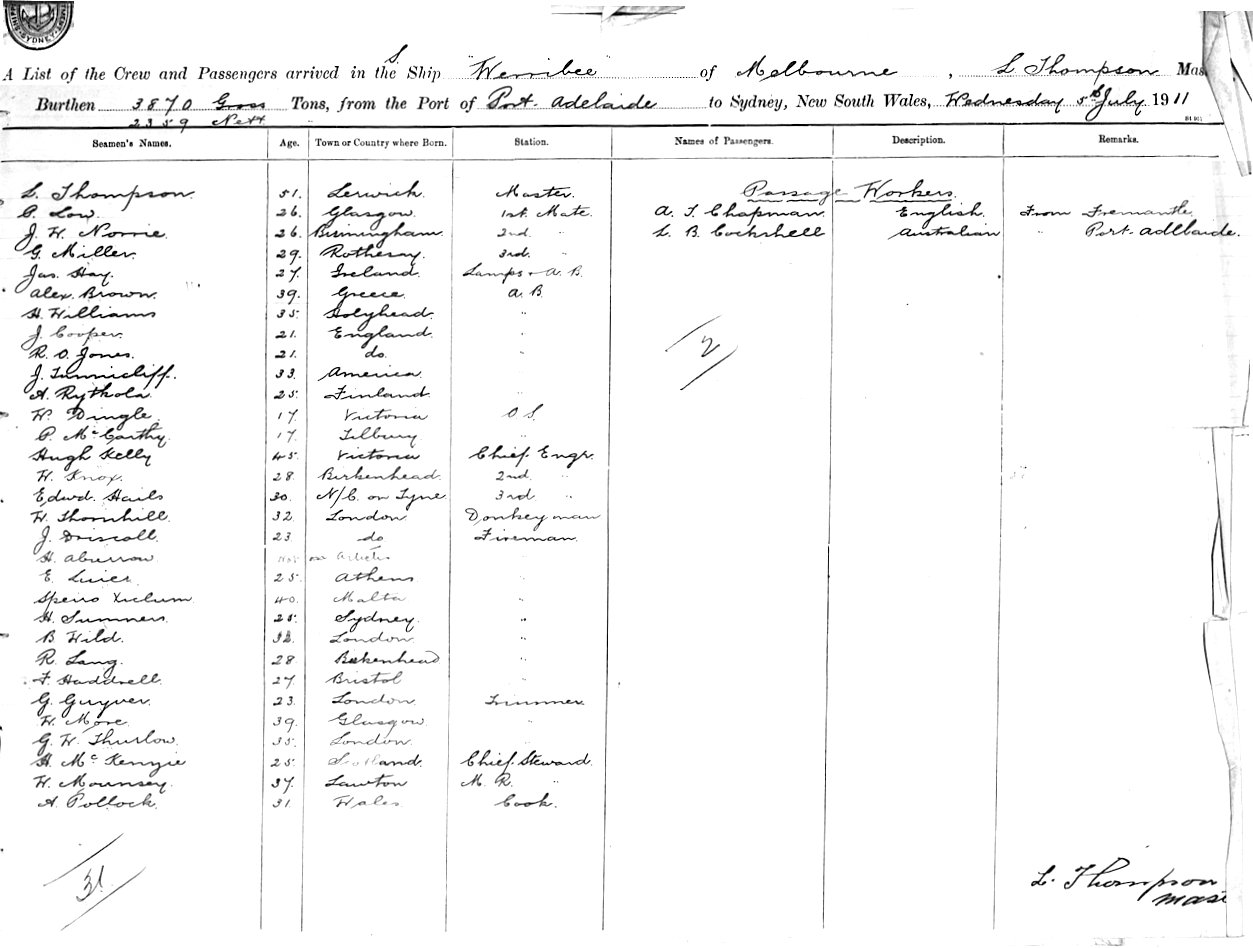 SYDNEY
S
A List of the Crew and Passengers arrived in the Ship "Werribee" of Melbourne, L Thompson Mas
Burthen 3870 Gross Tons, from the Port of Port Adelaide to Sydney, New South Wales, Wednesday 5th July 1911
2359 Nett
Seamen's Names. Age. Town or Country where Born. Station. Names of Passengers. Description. Remarks.
L. Thompson 51. Lerwick. Master. Passage Workers.
C. Low. 26. Glasgow. 1st. Mate. A. T. Chapman. English. From Fremantle.
J. W. Norrie. 26. Birmingham. 2nd. " L. B. Cockshell Australian " Port Adelaide.
G. Miller. 29. Rothesay. 3rd. "
Jas. Hay. 27 Ireland. Lamps & A. B.
Alex. Brown. 39. Greece. A. B.
H. Williams 35. Holyhead. "
J. Cooper. 21. England. "
R. O. Jones. 21. do. "
J. Tunnicliff. 33. America.
A. Rytkola. 25. Finland.
W. Dingle. 17. Victoria O S.
P. McCarthy. 17. Tilbury "
Hugh Kelly 45. Victoria Chief. Engr.
W. Knox. 28. Birkenhead. 2nd. "
Edwd. Hails 30. N/C. on Tyne. 3rd "
W. Thornhill. 32. London Donkeyman
J. Driscoll. 23 do Fireman.
H. Aburrow Not on Articles
E. 25. Athens "
Speiro 40. Malta "
H. Summers. 25. Sydney. "
B Wild. 32. London. "
R. Lang. 28. Birkenhead "
F. Haddrell. 27 Bristol
G. Guyver. 23. London. Trimmer.
W. More. 39. Glasgow. "
G. W. Thurlow. 35. London. "
H. McKenzie 25. Scotland. Chief. Steward.
W. Mounsey. 37. Lawton M. R. "
A. Pollock. 31. Wales Cook.
2
31
L. Thompson
Mas